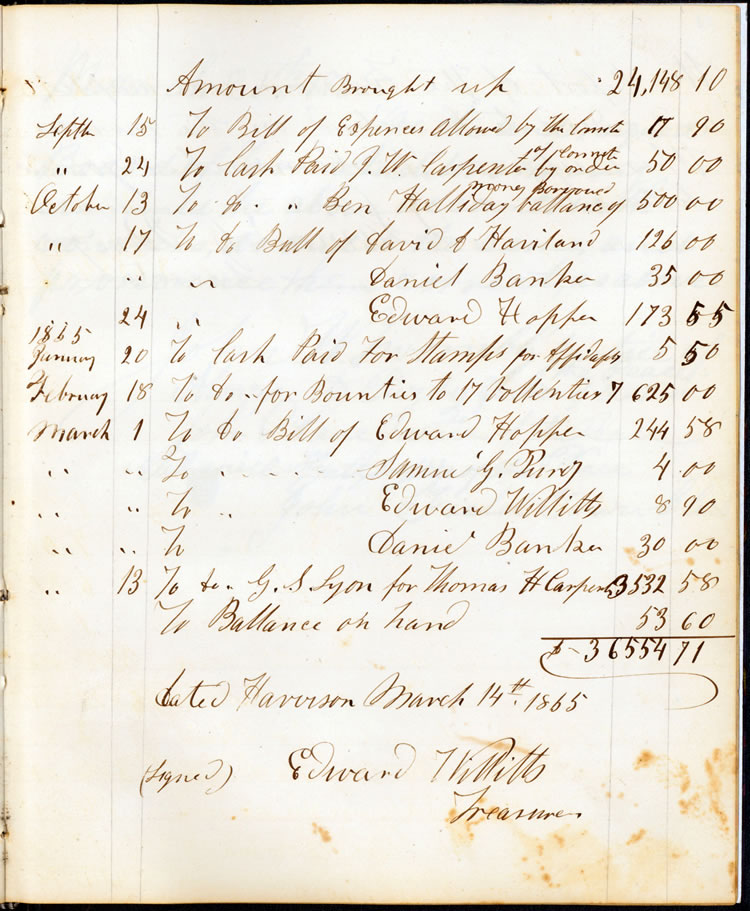 Amount Brought up 24,148 10
Septb 15 To Bill of Expences Allowed by the Comt 17 90
" 24 To Cash Paid J. W. Carpenter by order of Comt 50 00
October 13 To do " " Ben Halliday money Borrowed ballance of 500 00
" 17 To do Bull of David D Haviland 126 00
" " " Daniel Banker 35 00
24 " Edward Hopper 173 55
1865
January 20 To Cash Paid For Stamps for Affidavy 5 50
February 18 To do " for Bounties to 17 Vollenties 7 625 00
March 1 To do Bill of Edward Hopper 244 58
" " To " " " Samue G. Purdy 4 00
" " To " Edward Willitts 8 90
" " To Daniel Banker 30 00
" 13 To do " G. S Lyon for Thomas H Carpenter 3532 58
To Ballance on hand 53 60
$ 36554 71
Dated Harrison March 14th. 1865
(Signed) Edward Willitts
Treasurer